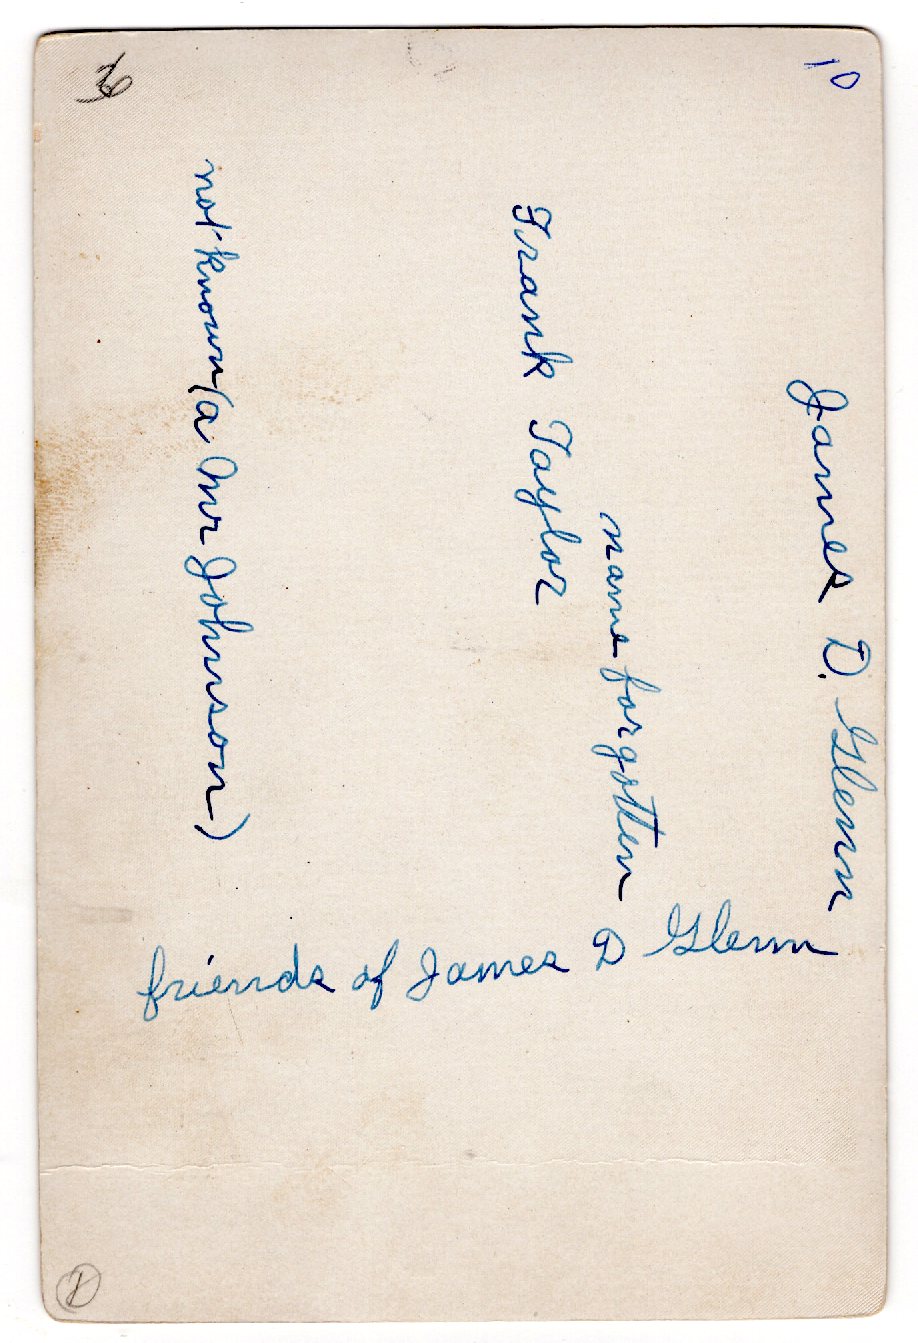 10
James D. Glenn
name forgotten
Frank Taylor
not known (a Mr Johnson)
friends of James D Glenn